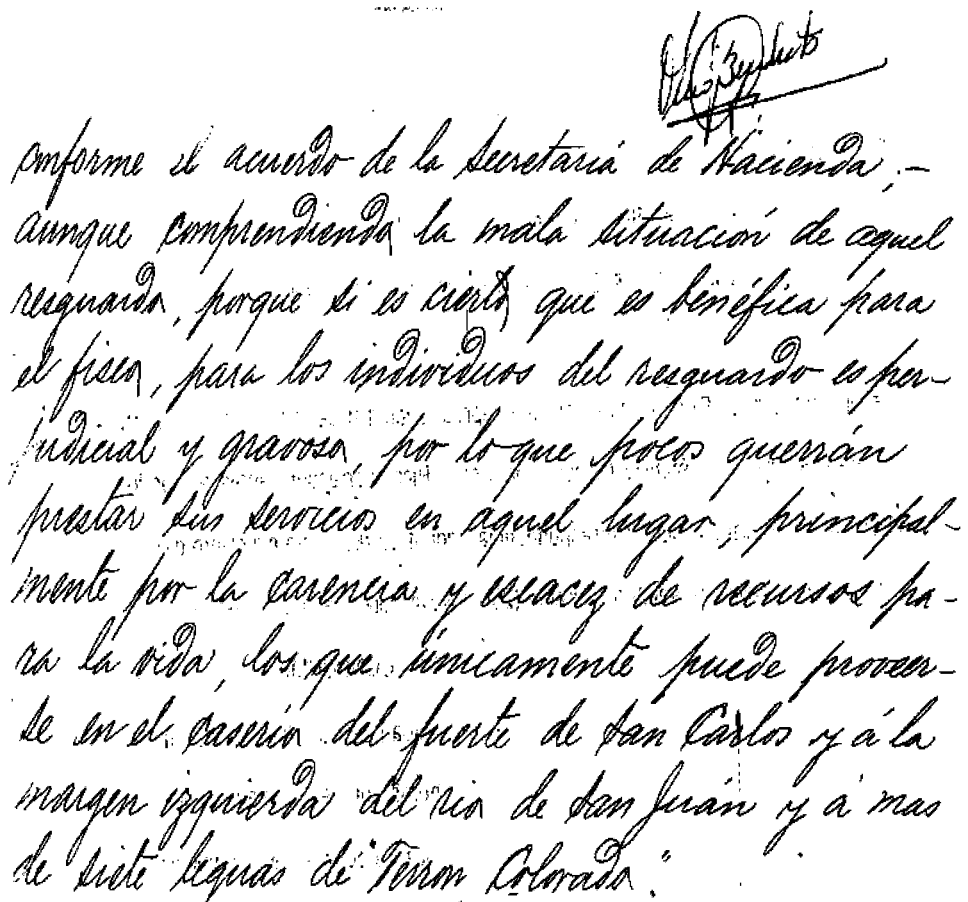 conforme el acuerdo de la Secretaria de Hacienda;-
aunque comprendiendo la mala situación de aquel
resguardo, porque si es cierto que es benéfica para
el fisco, para los individuos del resguardo es per-
judicial y gravosa, por lo que pocos querrán
prestar sus servicios en aquel lugar, principal-
mente por la carencia y escacez de recursos pa-
ra la vida, los que únicamente puede proveer-
se en el caserio del fuerte de San Carlos y á la
margen izquierda del rio de San Juán y á mas
de siete leguas de "Terron Colorado."